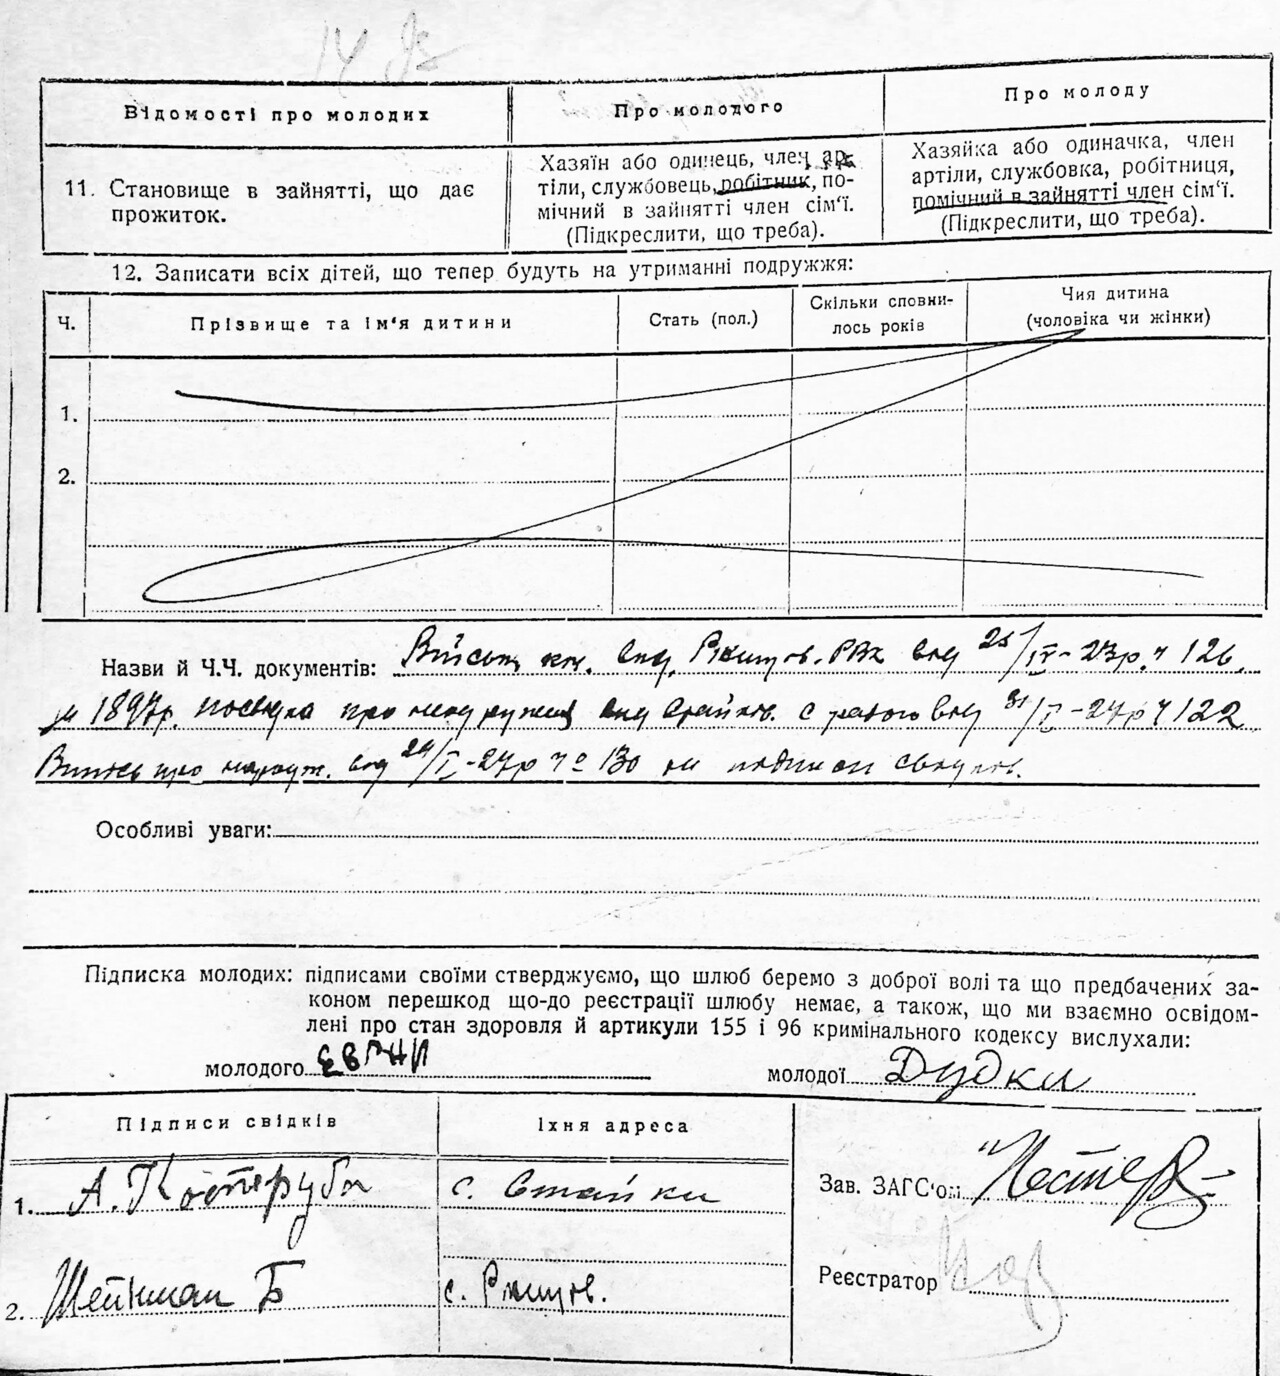 14
Відомості про молодих
Про молодого
Про молоду
11. Становище в зайнятті, що дає
прожиток.
Хазяїн або одинець, член ар-
тіли, службовець, робітник, по-
мічний в зайнятті член сім'ї.
(Підкреслити, що треба).
Хазяйка або одиначка, член
артіли, службовка, робітниця,
помічний в зайнятті член сім'ї.
(Підкреслити, що треба).
12. Записати всіх дітей, що тепер будуть на утриманні подружжя:
Ч.
Прізвище та ім'я дитини
Стать (пол.)
Скільки сповни-
лось років
Чия дитина
(чоловіка чи жінки)
1.
2.
Назви й Ч.Ч. документів: Військ. кн. вид. Ржищов. РВК від 25/IV-23р. ч 126
1897р. посвідка про від 31/I-27р ч 122
Випись про народж. від 24/I-27р ч 130 підписи свідків.
Особливі уваги:
Підписка молодих: підписами своїми стверджуємо, що шлюб беремо з доброї волі та що предбачених за-
коном перешкод що-до реєстрації шлюбу немає, а також, що ми взаємно освідом-
лені про стан здоровля й артикули 155 і 96 кримінального кодексу вислухали:
молодого
молодої Дудка
Підписи свідків
Їхня адреса
1. А. Костеруба
с. Стайки
Зав. ЗАГС'ом
2. Шейнман Б
с. Ржищів.
Реєстратор